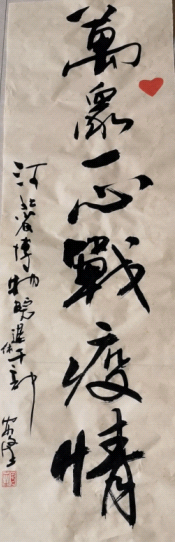 萬眾一心戰疫情
河北省博物院退休干部